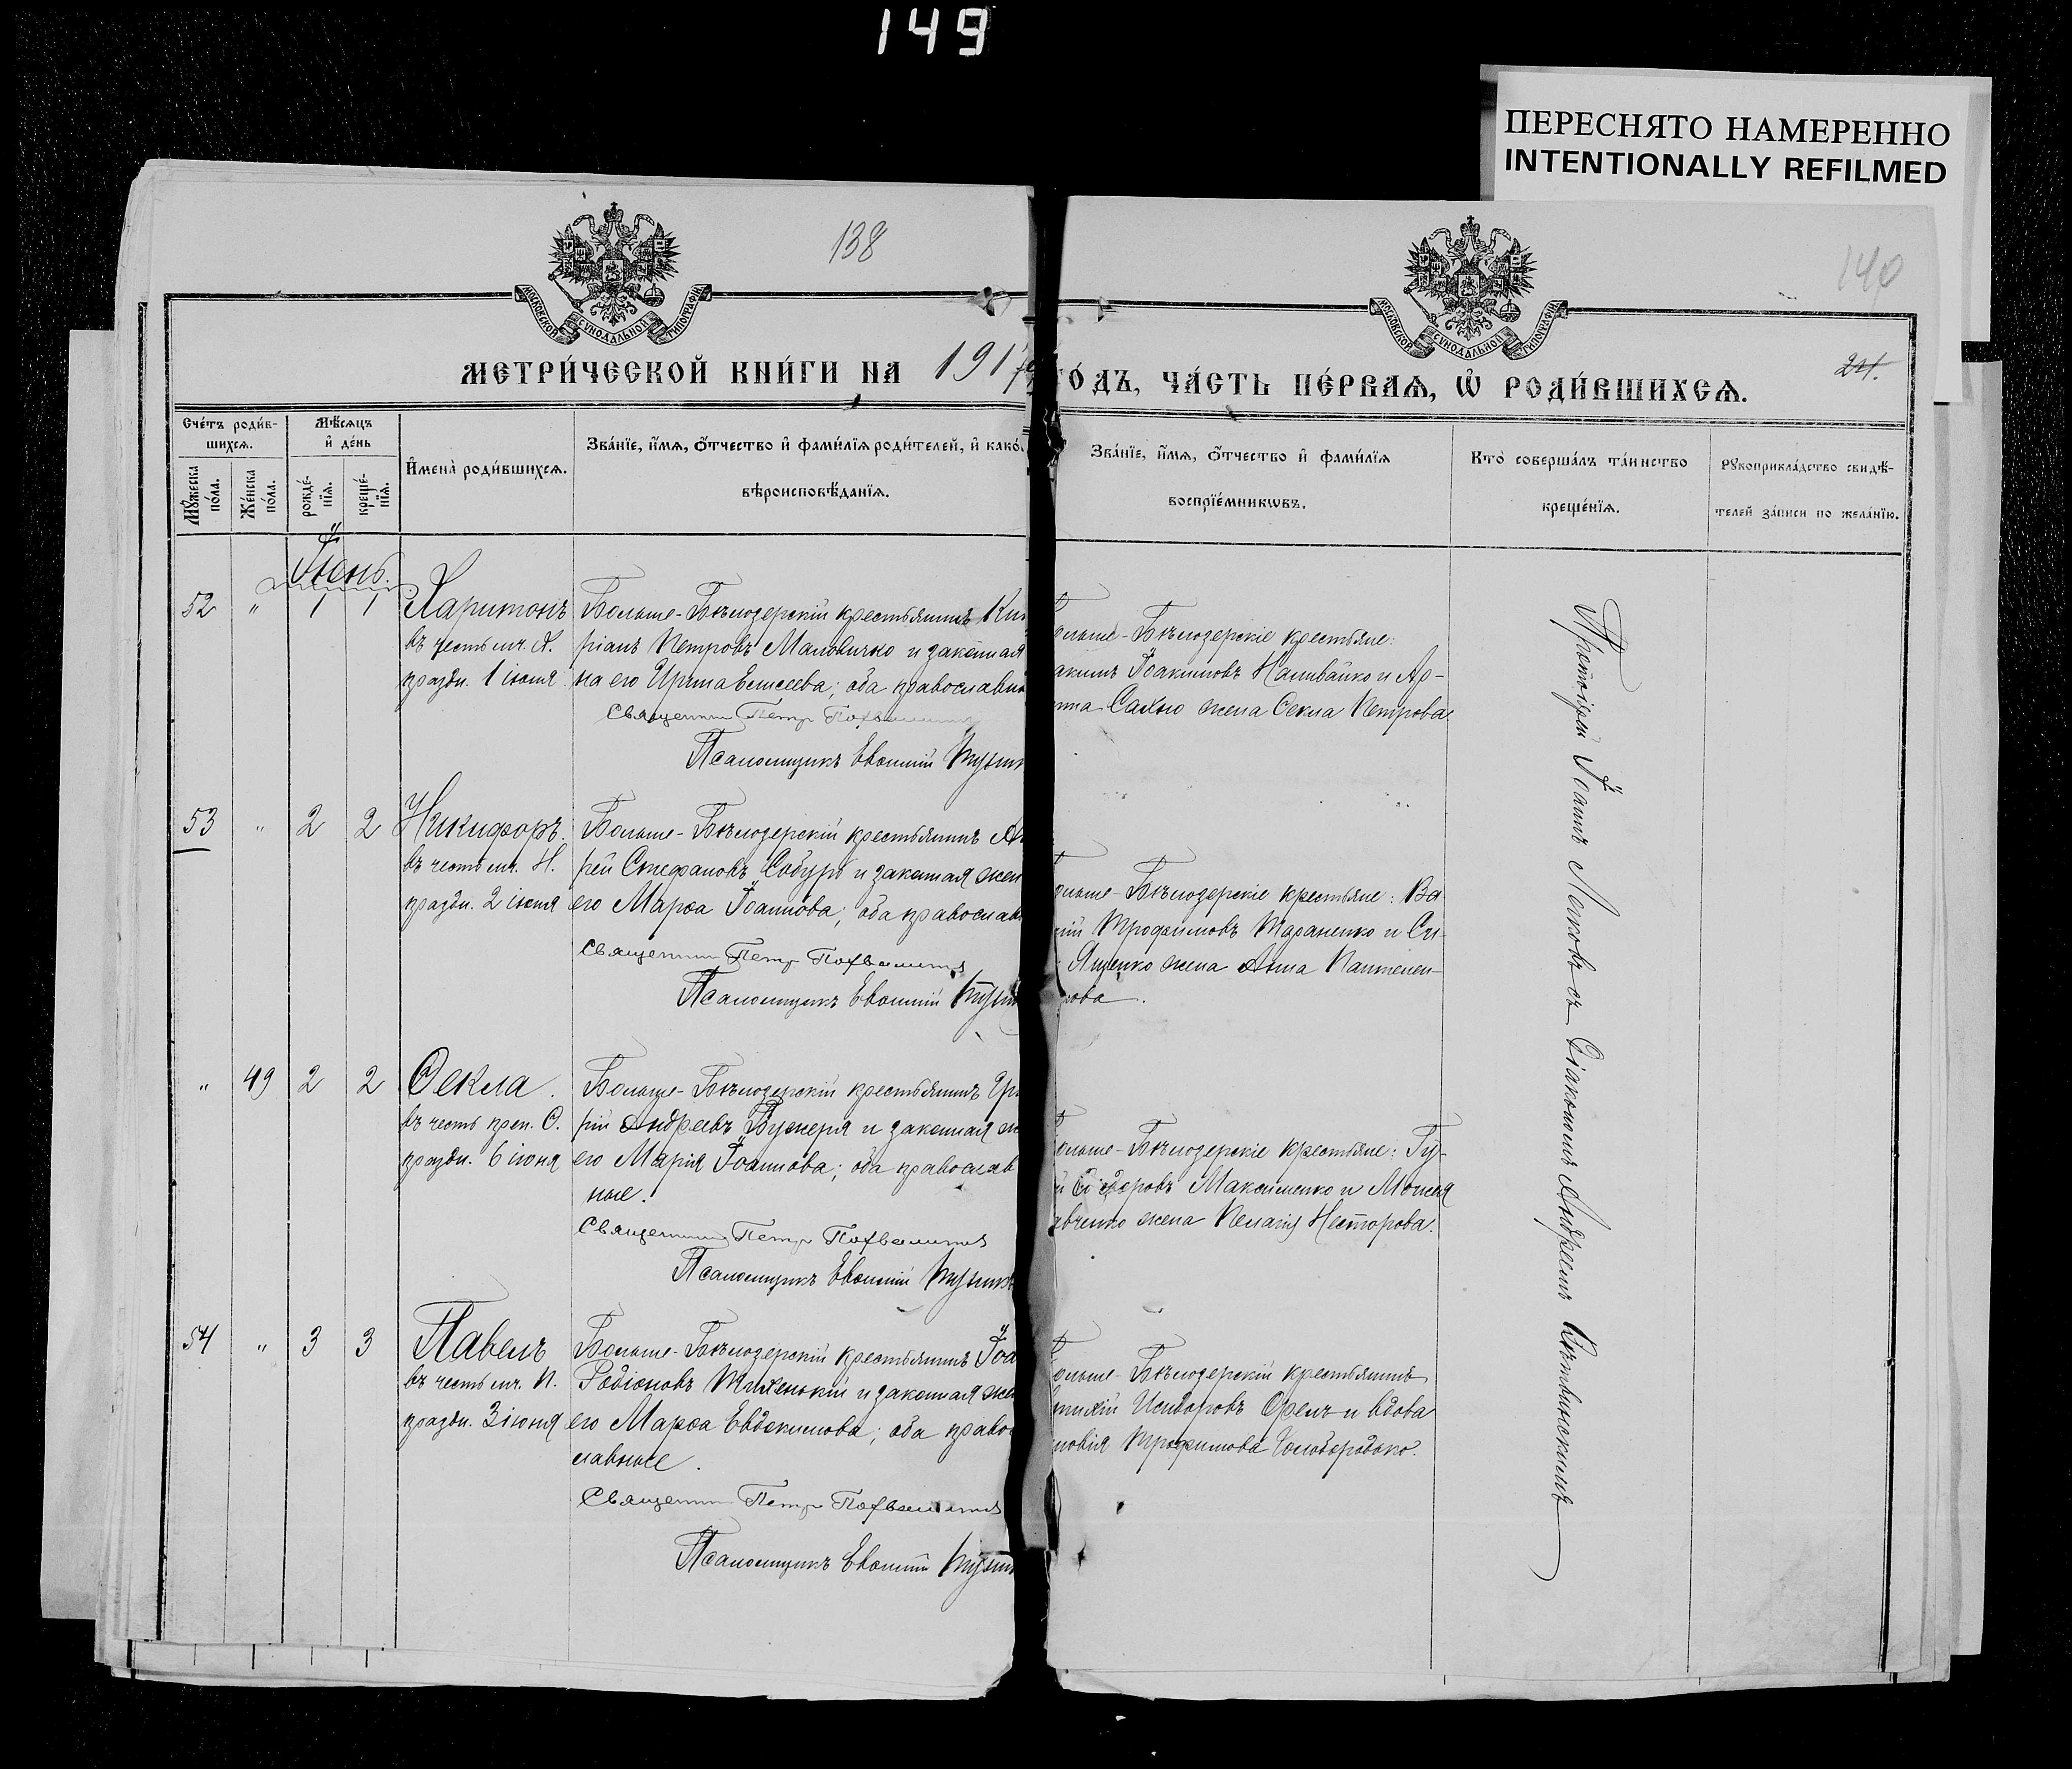 149
ПЕРЕСНЯТО НАМЕРЕННО
INTENTIONALLY REFILMED
138
140
МОСКОВСКОЙ СѴНОДАЛЬНОЙ ТИПОГРАФІИ
МОСКОВСКОЙ СѴНОДАЛЬНОЙ ТИПОГРАФІИ
МЕТРИ́ЧЕСКОЙ КНИ́ГИ НА 1917
ГО́ДЪ, ЧА́СТЬ ПЕ́РВАѦ, Ѡ҆ РОДИ́ВШИХСѦ.
24.
Сче́тъ роди́в-
шихсѧ.
Мѣ́сѧцъ
и҆ де́нь
Мꙋ́жеска
по́ла.
Же́нска
по́ла.
рожде́-
нїѧ.
креще́-
нїѧ.
И҆мена̀ роди́вшихсѧ.
Зва́нїе, и҆́мѧ, ѻ҆́тчество и҆ фами́лїѧ роди́телей, и҆ како́
вѣроисповѣ́данїѧ.
Зва́нїе, и҆́мѧ, ѻ҆́тчество и҆ фами́лїѧ
воспрїе́мникѡвъ.
Кто̀ соверша́лъ та́инство
креще́нїѧ.
Рꙋкоприкла́дство свидѣ́-
телей за́писи по жела́нїю.
Іюнь.
52 " 1 1 Харитонъ
въ честь мч. Х.
праздн. 1 іюня
Больше-Бѣлозерскій крестьянинъ Ки
ріанъ Петровъ Маловичко и законная
на его Ирина Елисеева; оба православн
Священник Петр Похвалитов
Псаломщикъ Евѳимій
ольше-Бѣлозерскіе крестьяне:
акимъ Іоакимовъ Наливайко и Ар-
Сахно жена Ѳекла Петрова.
53 " 2 2 Никифоръ.
въ честь мч. Н.
праздн. 2 іюня
Больше-Бѣлозерскій крестьянинъ Ан
рей Стефановъ Собуръ и законная жен
его Марѳа Іоаннова; оба православ
Священник Петр Похвалитов
Псаломщикъ Евѳимій
ольше-Бѣлозерскіе крестьяне: Ва
лій Трофимовъ Тараненко и Си-
Ященко жена Анна Пантелеи-
нова.
" 49 2 2 Ѳекла.
въ честь преп. Ѳ.
праздн. 6 іюня
Больше-Бѣлозерскій крестьянинъ Гри
рій Андреевъ Бужеря и законная ж
его Марія Іоаннова; оба православ
ные.
Священник Петр Похвалитов
Псаломщикъ Евѳимій
ольше-Бѣлозерскіе крестьяне: Гу-
й Ѳедоровъ Максименко и Моисея
авченко жена Пелагія Несторова.
54 " 3 3 Павелъ
въ честь мч. П.
праздн. 3 іюня
Больше-Бѣлозерскій крестьянинъ Іоа
Родіоновъ Тихенькій и законная же
его Марѳа Евдокимова; оба право
славные.
Священник Петр Похвалитов
Псаломщикъ Евѳимій
ольше-Бѣлозерскій крестьянинъ
тихій Исидоровъ Орелъ и вдова
новія Трофимова Голобородько.
Протоіерей Іоаннъ съ Діакономъ Андреемъ